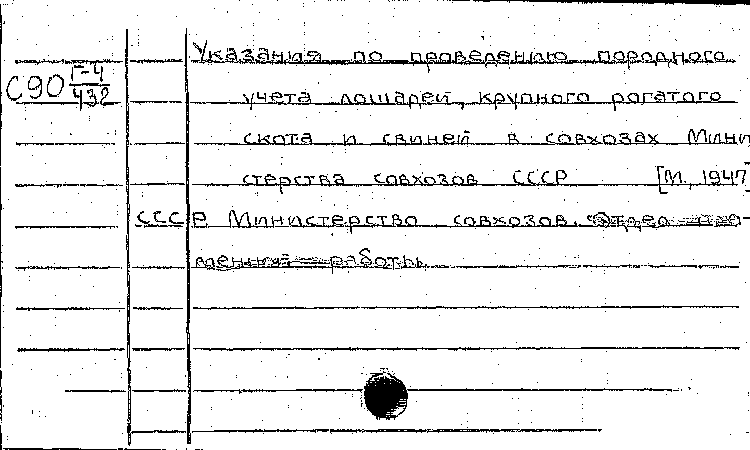 Указания по проведению породного
С90 Г-4/432
учета лошадей, крупного рогатого
скота и свиней в совхозах Мини
стерства совхозов СССР [М., 1947]
СССР Министерство совхозов. Отдел пле-
менной работы.